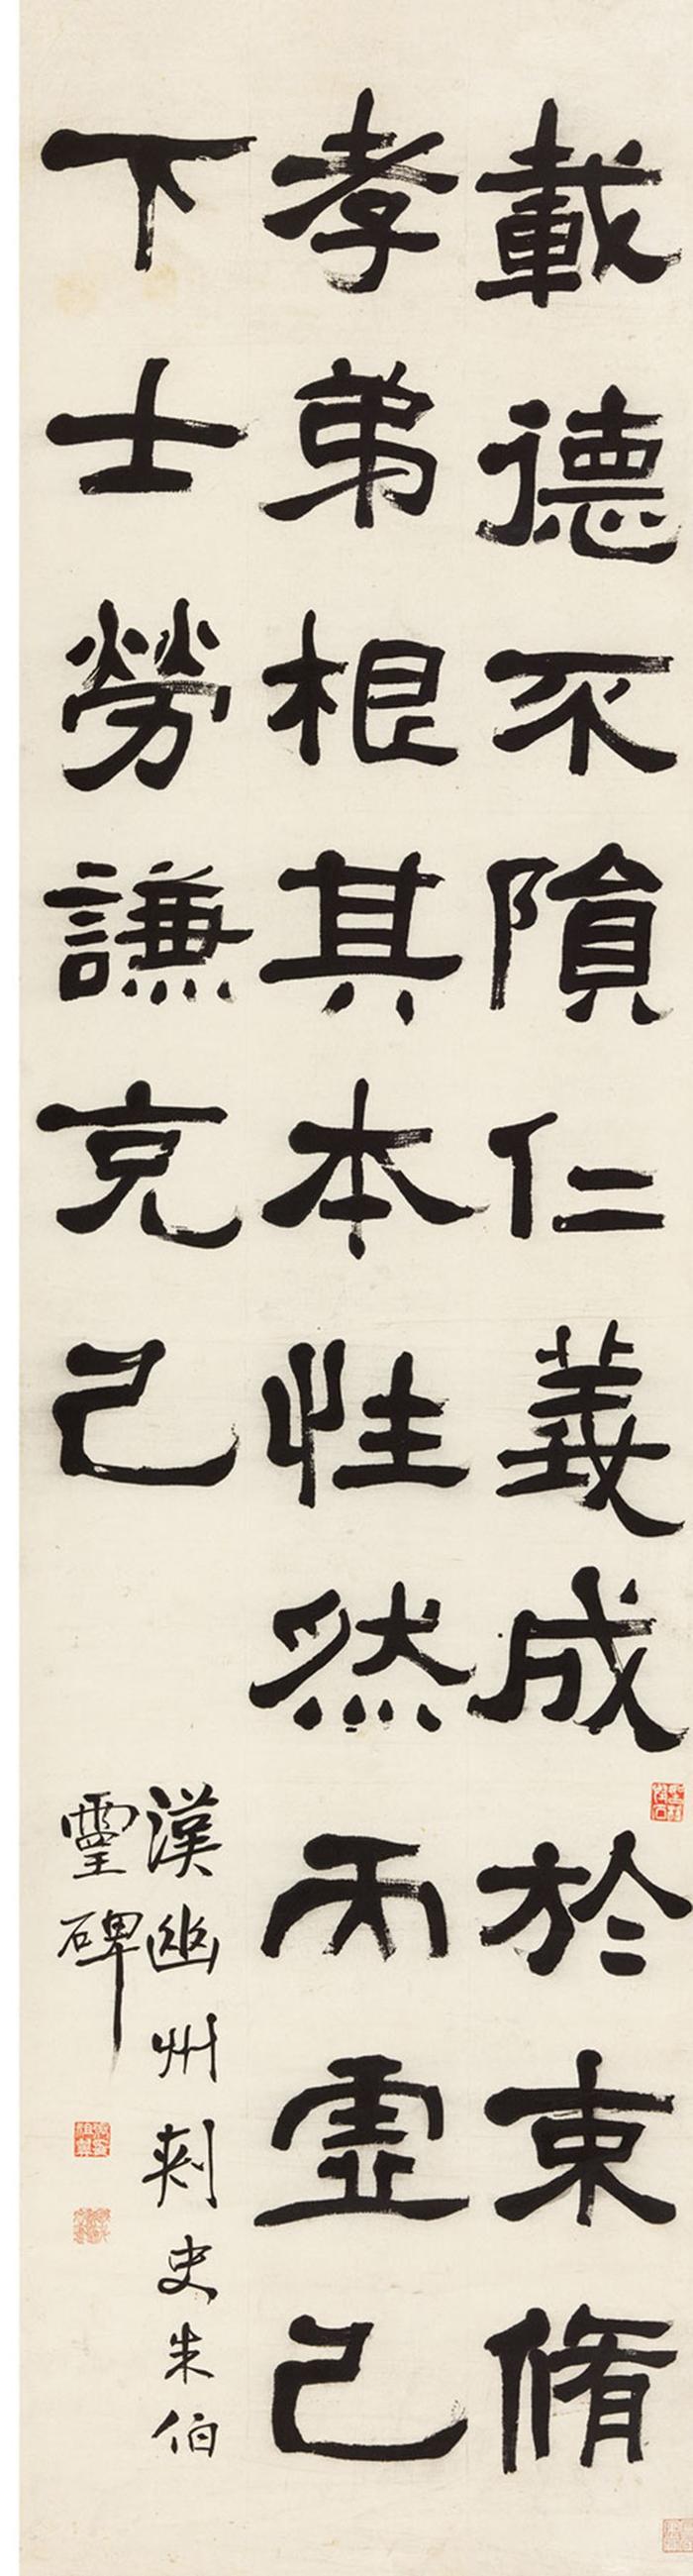 載德不隕仁義成於束脩
孝弟根其本性然而虛己
下士勞謙克己
漢幽州刺史朱伯
靈碑